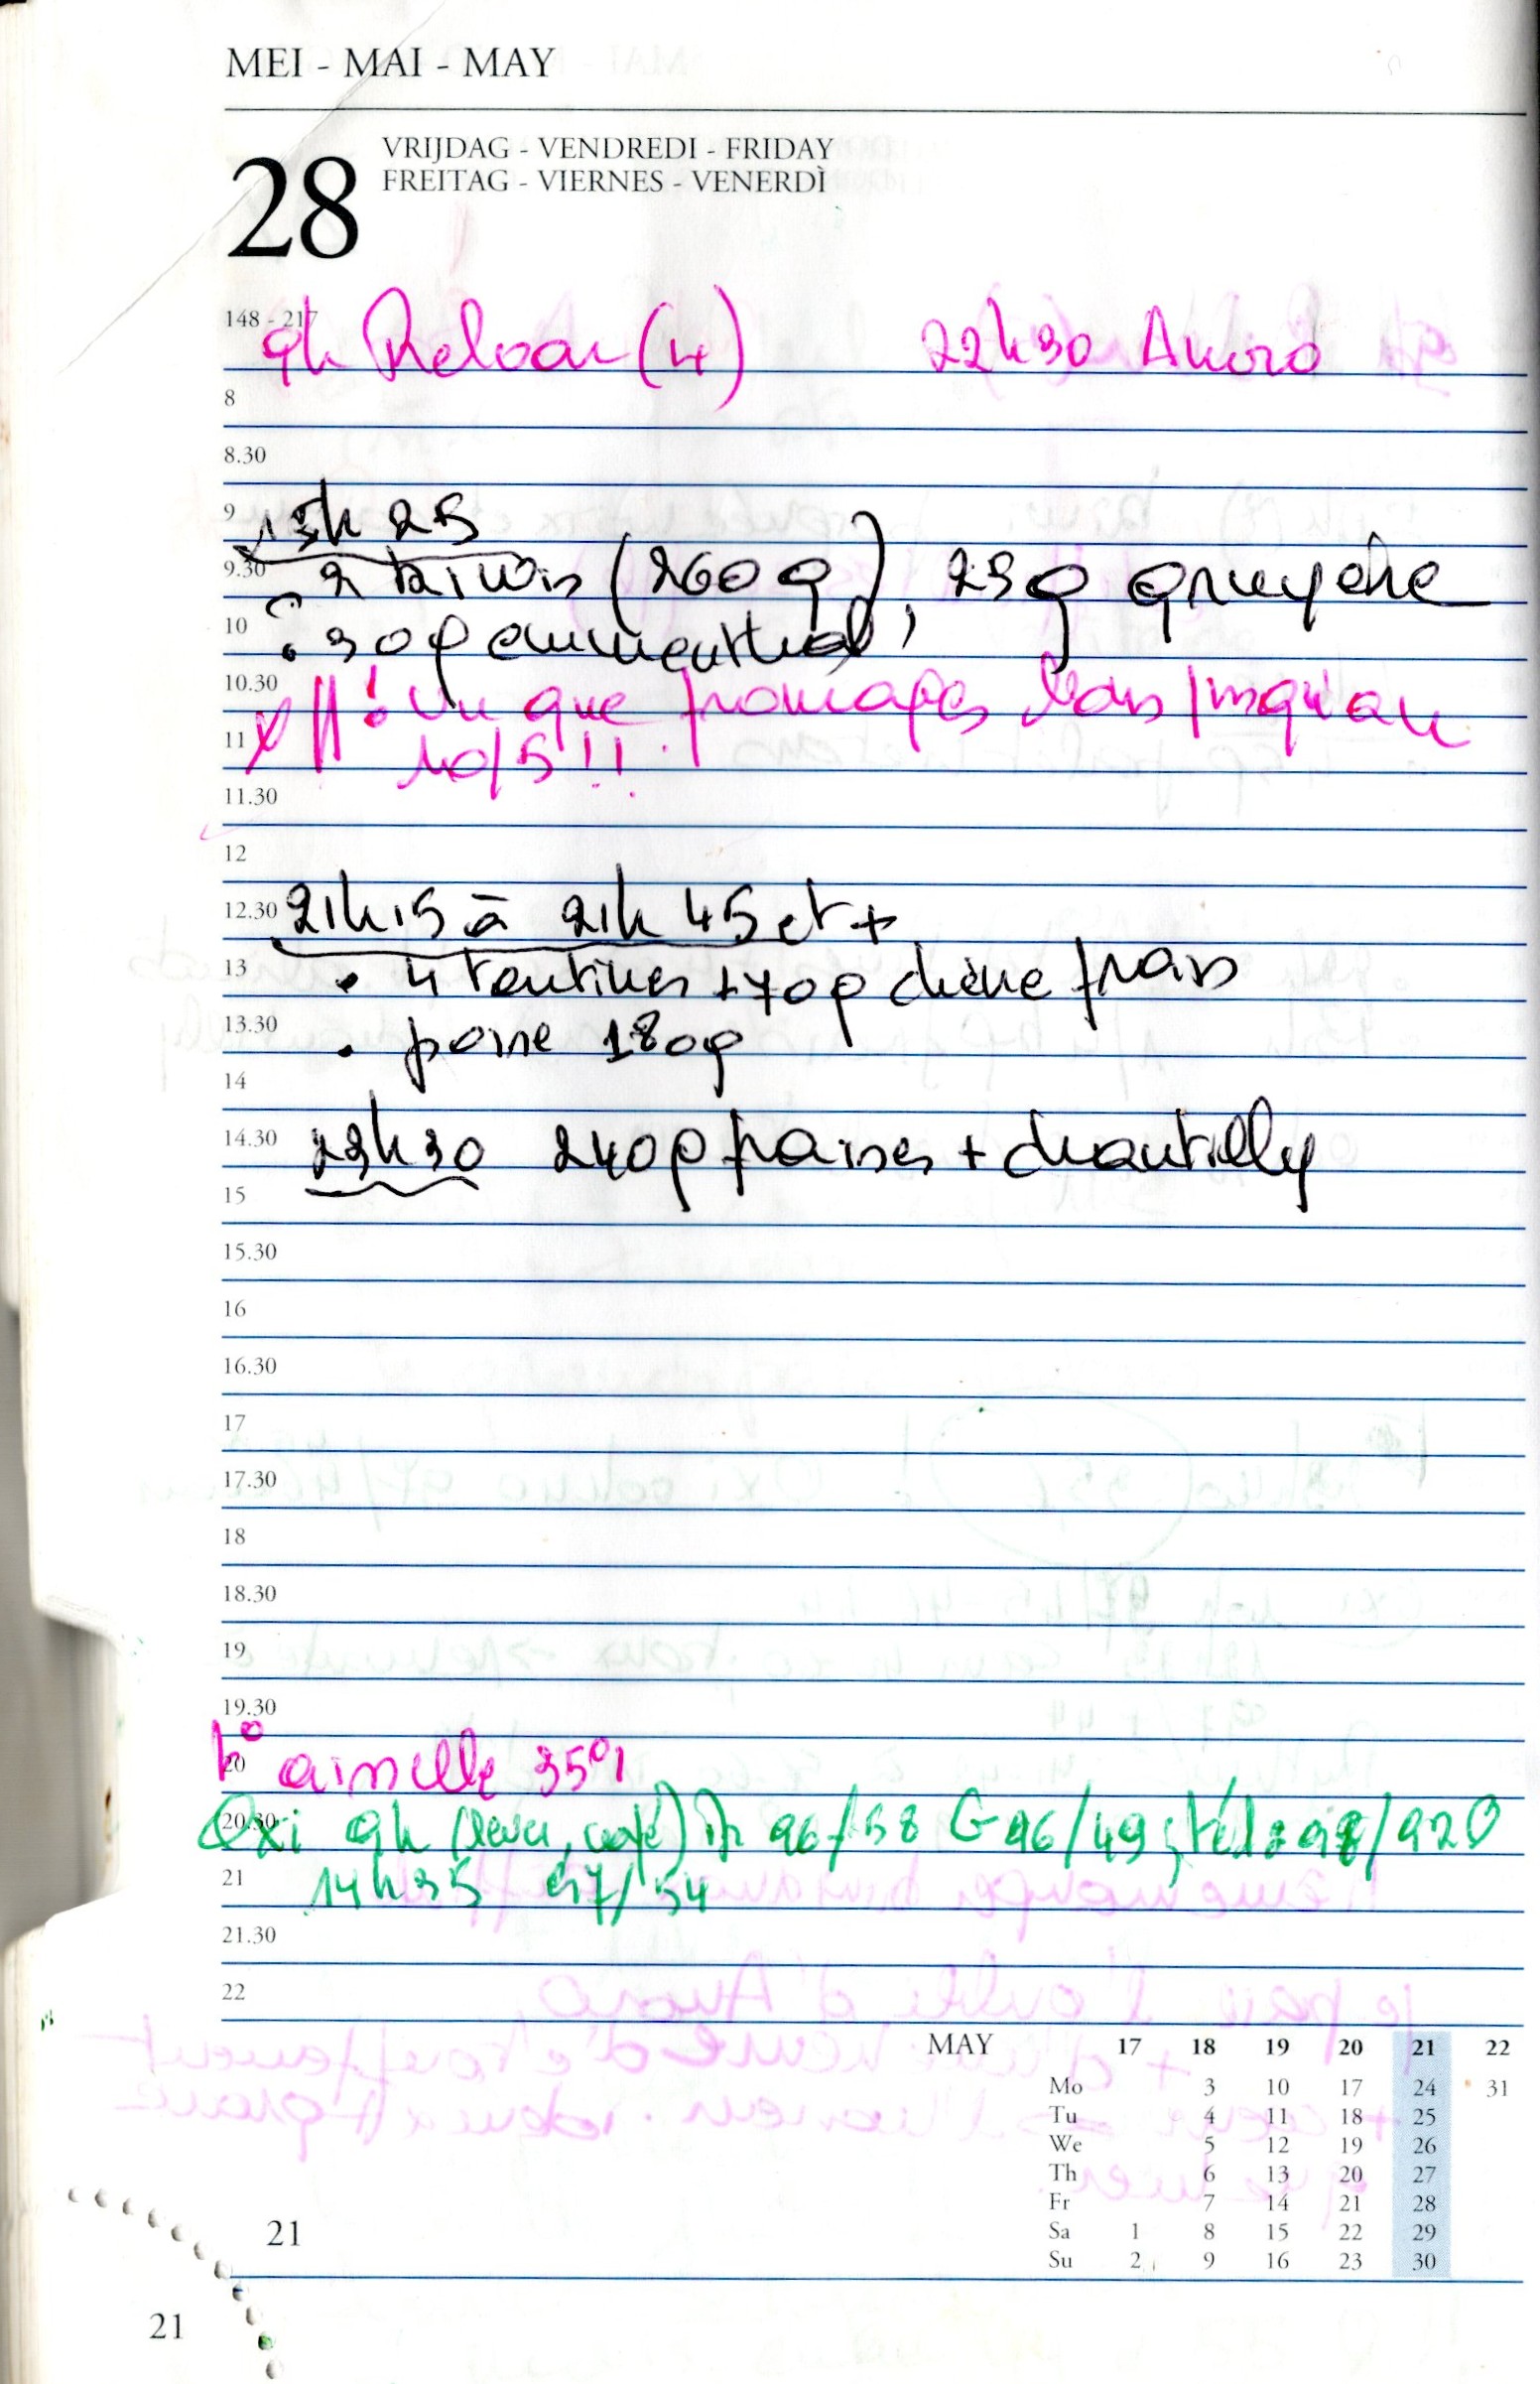 MEI - MAI - MAY
28
VRIJDAG - VENDREDI - FRIDAY
FREITAG - VIERNES - VENERDÌ
148 - 217
9h Relvar (4) 22h30 Anoro
8
8.30
9
13h25
9.30
2 kiwis (260g), 25g gruyère
10
30g emmenthal
10.30
! Vu que fromages bons jusqu'au
11
10/5!!
11.30
12
12.30
21h15 à 21h45 et +
13
• 4 tartines + 70g chèvre frais
13.30
• poire 180g
14
14.30
23h30 240g fraises + chantilly
15
15.30
16
16.30
17
17.30
18
18.30
19
19.30
t° aisselle 35°1
20
20.30
Oxi 9h (lever, café) 96/58 G 96/49
21
14h35 97/54
21.30
22
MAY 17 18 19 20 21 22
Mo 3 10 17 24 31
Tu 4 11 18 25
We 5 12 19 26
Th 6 13 20 27
Fr 7 14 21 28
Sa 1 8 15 22 29
Su 2 9 16 23 30
21
21